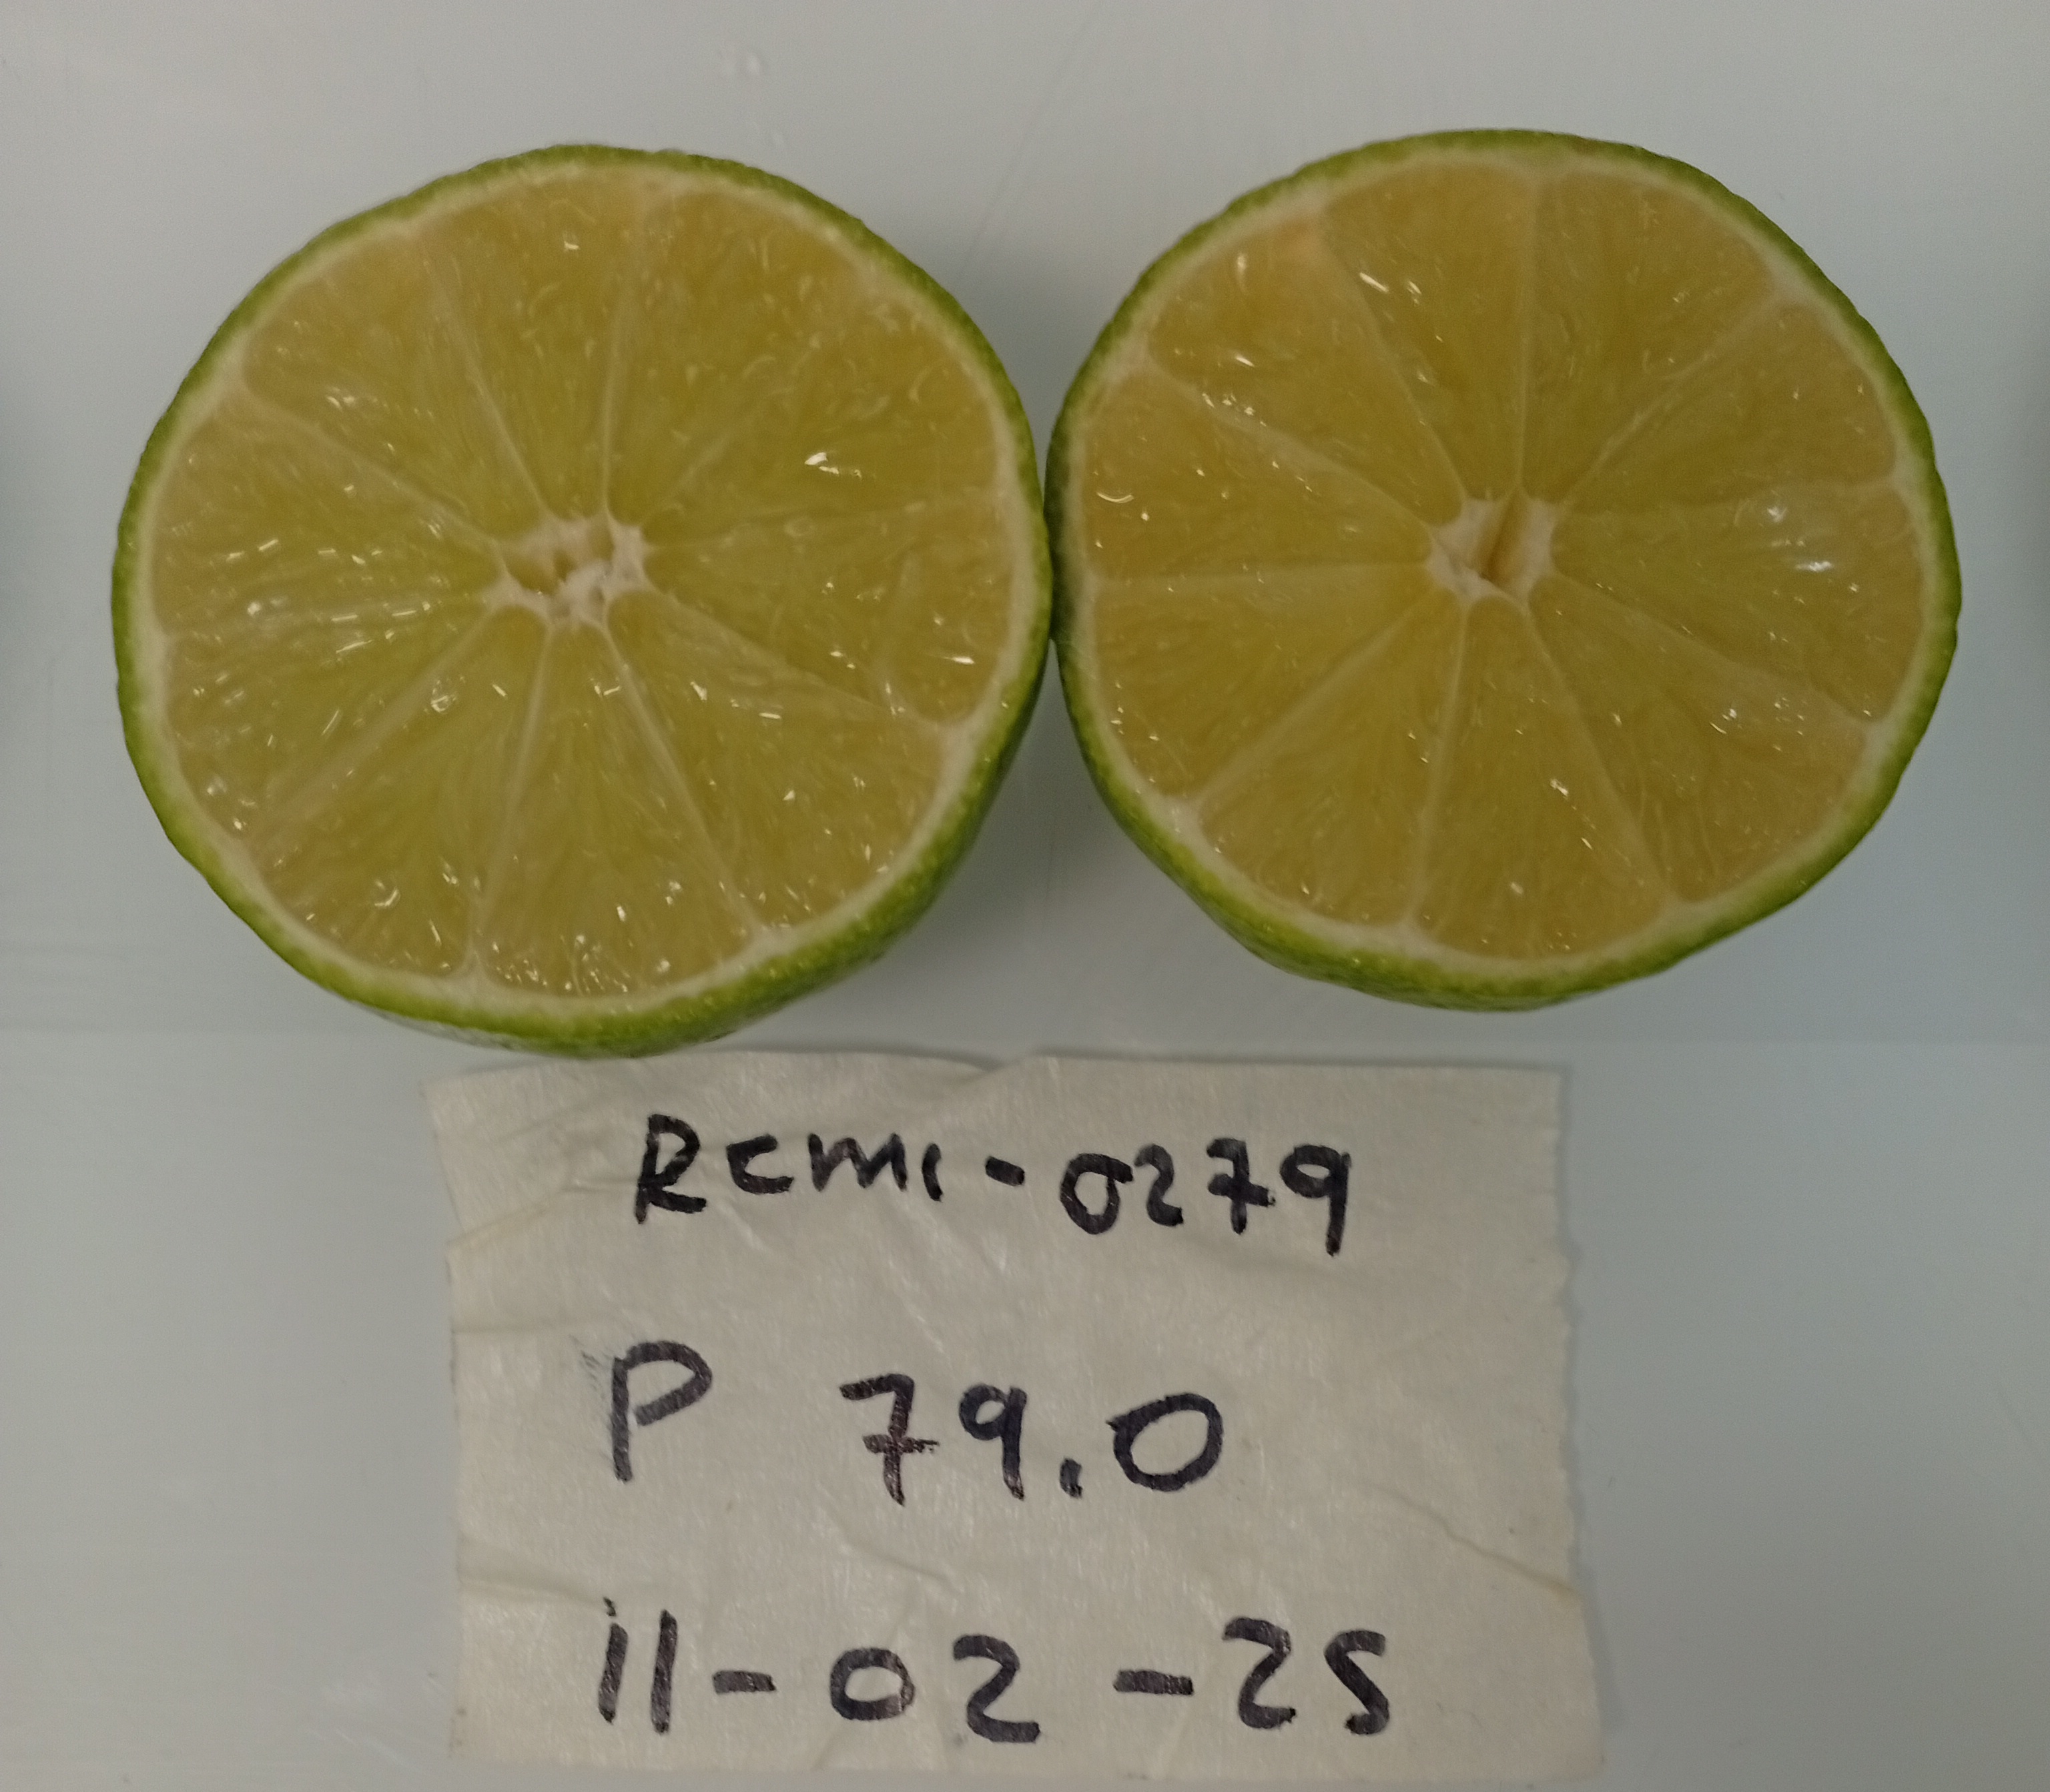 RCMI-0279
P 79.0
11-02-25